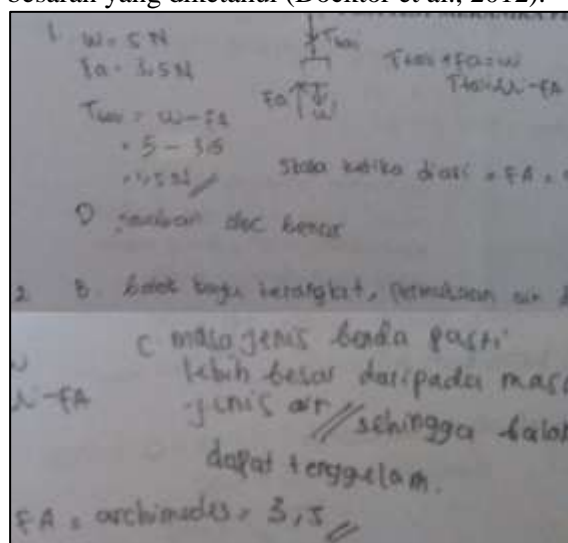 besaran yang diketahui (Docktor et al., 2012).
1. W = 5 N
Fa = 3.5 N
T tali
T tali + Fa = W
T tali = W - FA
Fa W
T tali = W - FA
= 5 - 3.5
= 1,5 N //
Skala ketika diari = FA =
D jawaban dec benar
2 B. balok kayu terangkat, permukaan air
C masa jenis benda pasti
W - FA
lebih besar daripada mas
jenis air // sehingga balo
dapat tenggelam.
FA = archimedes = 3,5 //